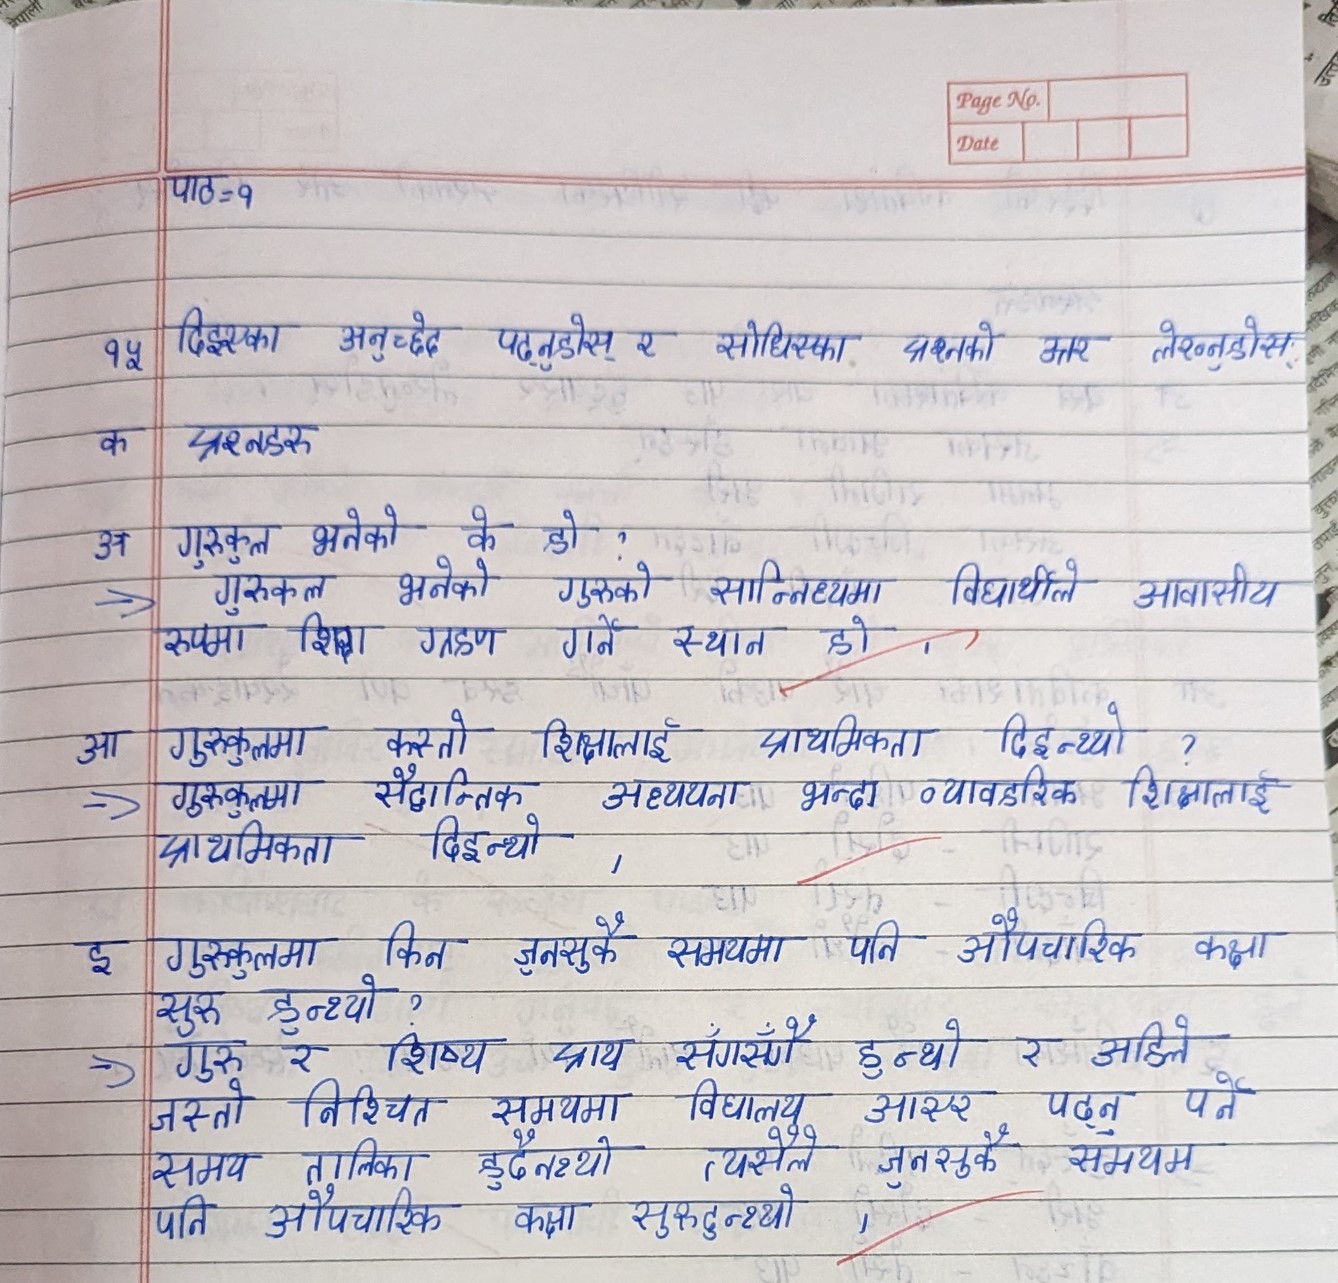 Page No.
Date
पाठ=१
१५ दिइएका अनुच्छेद पढ्नुहोस् र सोधिएका प्रश्नको उत्तर लेख्नुहोस्:
क प्रश्नहरू
अ गुरुकुल भनेको के हो ?
⇒ गुरुकल भनेको गुरुको सान्निध्यमा विद्यार्थीले आवासीय
रुपमा शिक्षा ग्रहण गर्ने स्थान हो ।
आ गुरुकुलमा कस्तो शिक्षालाई प्राथमिकता दिइन्थ्यो ?
⇒ गुरुकुलमा सैद्धान्तिक अध्ययना भन्दा व्यावहारिक शिक्षालाई
प्राथमिकता दिइन्थ्यो ।
इ गुरुकुलमा किन जुनसुकै समयमा पनि औपचारिक कक्षा
सुरु हुन्थ्यो ?
⇒ गुरु र शिष्य प्राय सँगसँगै हुन्थो र अहिले
जस्तो निश्चित समयमा विद्यालय आएर पढ्नु पर्ने
समय तालिका हुदैनथ्यो त्यसैले जुनसुकै समयम
पनि औपचारिक कक्षा सुरुहुन्थ्यो ।